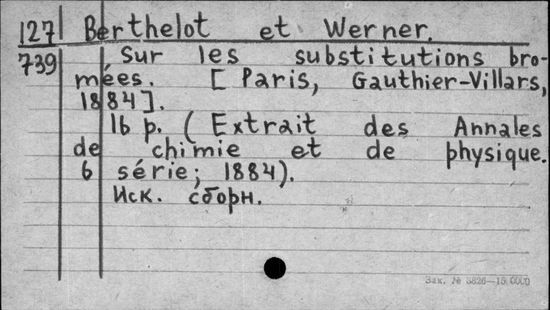 127 Berthelot et Werner.
739 Sur les substitutions bro-
mées. [Paris, Gauthier-Villars,
1884].
16 p. (Extrait des Annales
de chimie et de physique.
6 série; 1884).
Иск. сборн.
Зак. № 3826—15.0000